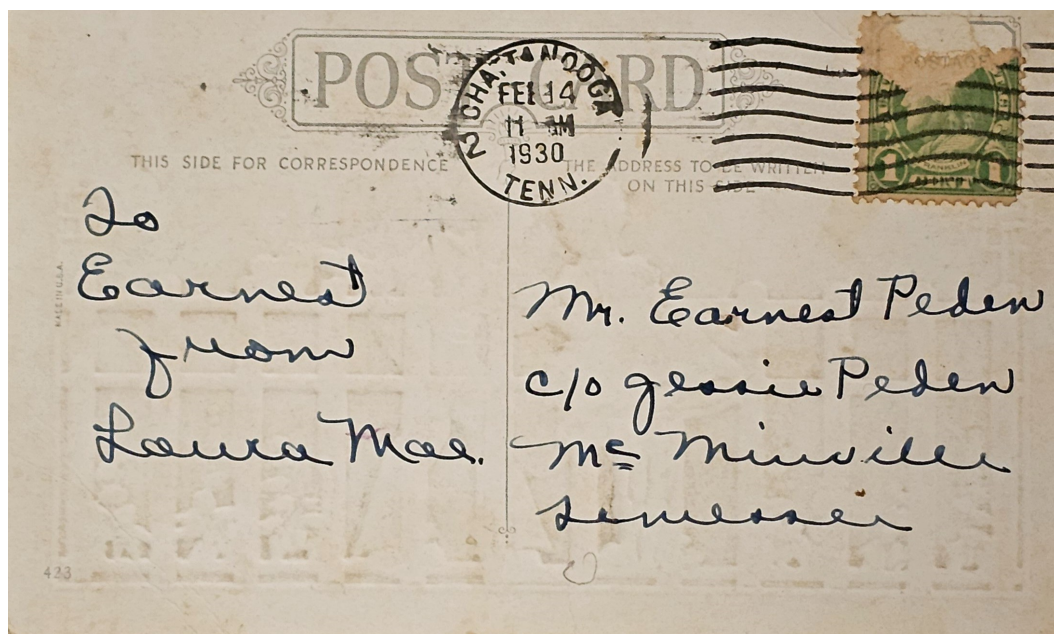 POST CARD
CHATTANOOGA
FEB 14
11 AM
1930
TENN.
2
POSTAGE
1 1
THIS SIDE FOR CORRESPONDENCE
THE ADDRESS TO BE WRITTEN
ON THIS SIDE
MADE IN U.S.A.
To
Earnest
from
Laura Mae.
Mr. Earnest Peden
c/o Jessie Peden
Mc Minville
Tennessee
423